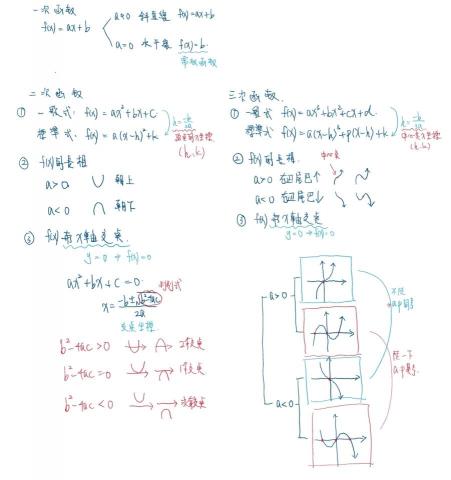 一次函數
f(x)=ax+b
a≠0 斜直線 f(x)=ax+b
a=0 水平線 f(x)=b
常數函數
二次函數
① 一般式: f(x)=ax²+bx+c
標準式: f(x)=a(x-h)²+k
h=-b/2a
(h,k)
② f(x)圖長相
a>0 朝上
a<0 朝下
③ f(x)與x軸交點
y=0 → f(x)=0
ax²+bx+c=0
判別式
x=(-b±√b²-4ac)/2a
交點坐標
b²-4ac>0 2交點
b²-4ac=0 1交點
b²-4ac<0 沒交點
三次函數
① 一般式 f(x)=ax³+bx²+cx+d
標準式 f(x)=a(x-h)³+p(x-h)+k
h=-b/3a
(h,k)
② f(x)圖長相
a>0 右尾巴↑
a<0 右尾巴↓
③ f(x)與x軸交點
y=0→f(x)=0
a>0
a<0
ap同號
ap異號